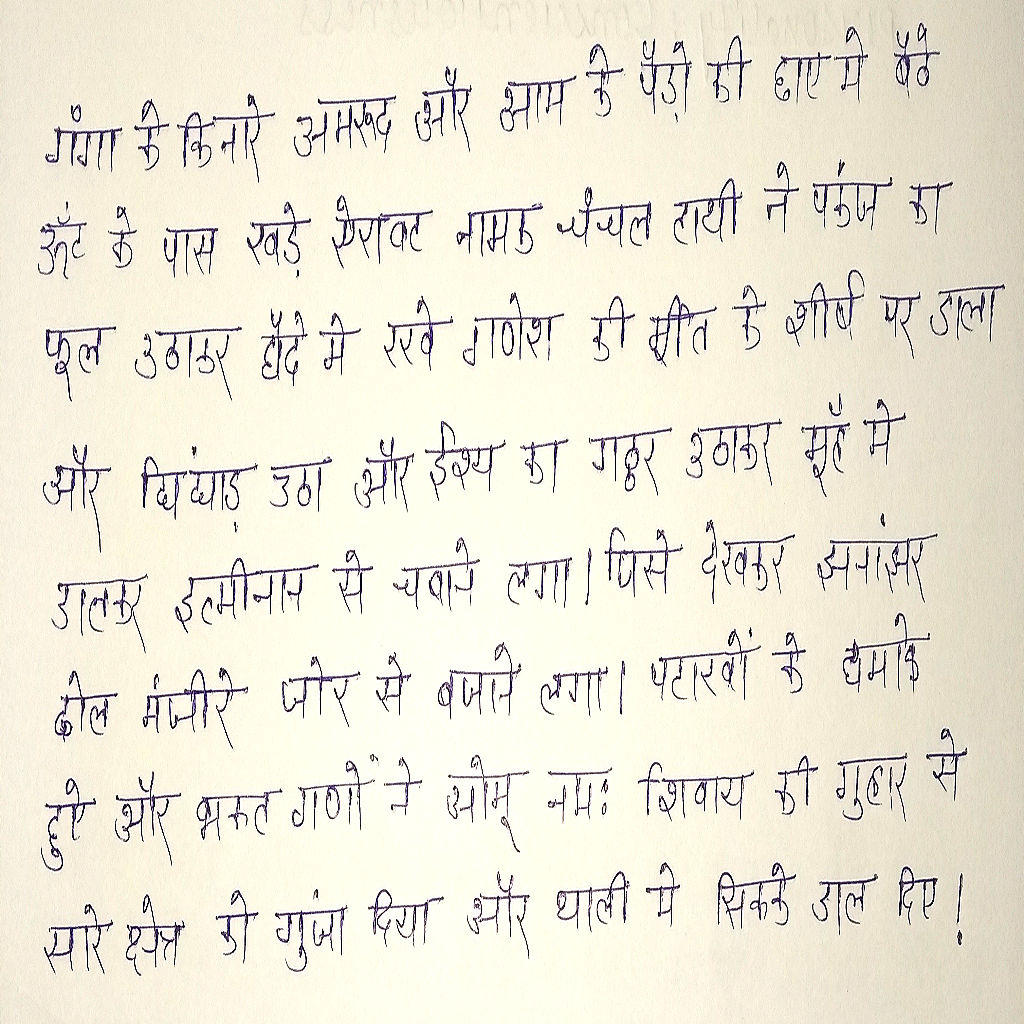 गंगा के किनारे अमरूद और आम के पेड़ो की छाए मे बैठे
ऊँट के पास खड़े ऐरावट नामक चंचल हाथी ने पकंज का
फूल उठाकर हौदे मे रखे गणेश की मूर्ति के शीर्ष पर डाला
और चिंघाड़ उठा और ईश्य का गठ्ठर उठाकर मूहँ मे
डालकर इत्मीनान से चबाने लगा। जिसे देखकर झनांझर
ढोल मंजीरे जोर से बजाने लगा। पटाखों के धमाके
हुऐ और भकत गणों ने ओम् नमः शिवाय की गुहार से
सारे क्षेत्र को गुजां दिया और थाली मे सिकके डाल दिए!